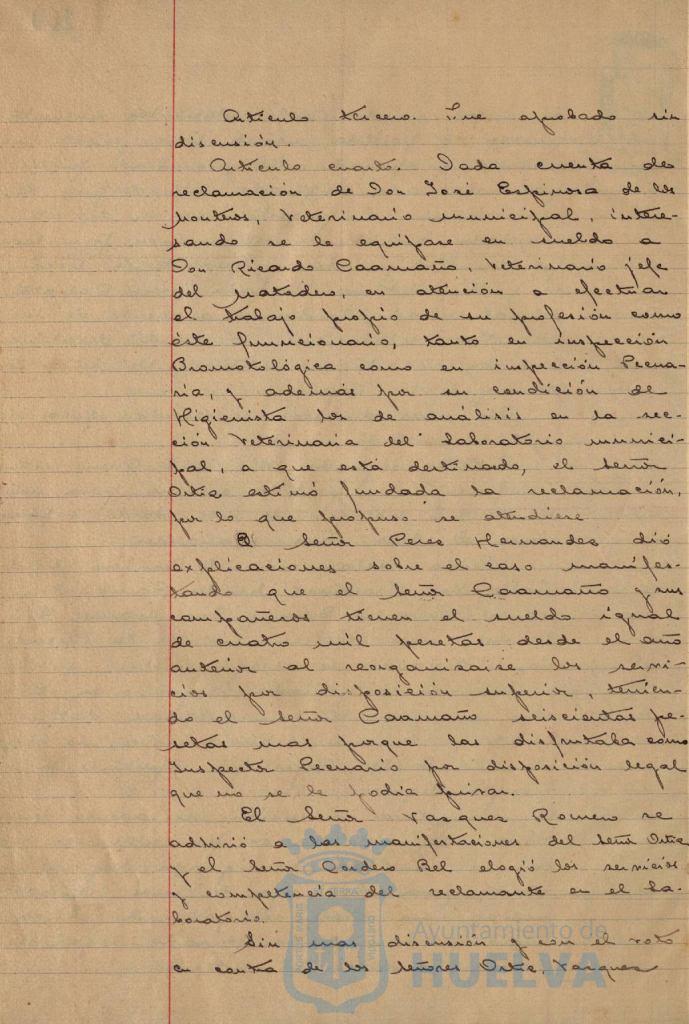 Artículo tercero. Fue aprobado sin
discusión.
Artículo cuarto. Dada cuenta de
reclamación de Don José Espinosa de los
Monteros, Veterinario municipal, intere-
sando se le equipare en sueldo a
Don Ricardo Caamaño, Veterinario jefe
del Matadero, en atención a efectuar
el trabajo propio de su profesión como
éste funcionario, tanto en inspección
Bromotológica como en inspección Pecua-
ria, y además por su condición de
Higienista los de análisis en la sec-
ción Veterinaria del Laboratorio munici-
pal, a que está destinado, el Señor
Ortiz estimó fundada la reclamación,
por lo que propuso se atendiese
El Señor Perez Hernandez dió
explicaciones sobre el caso manifes-
tando que el Señor Caamaño y sus
compañeros tienen el sueldo igual
de cuatro mil pesetas desde el año
anterior al reorganizarse los servi-
cios por disposición superior, tenien-
do el Señor Caamaño seiscientas pe-
setas mas porque las disfrutaba como
Inspector Pecuario por disposición legal
que no se le podia privar.
El Señor Vazquez Romero se
adhirió a las manifestaciones del Señor Ortiz
y el Señor Cordero Bel elogió los servicios
y competencia del reclamante en el La-
boratorio.
Sin mas discusion y con el voto
en contra de los Señores Ortiz, Vazquez
Ayuntamiento de
HUELVA